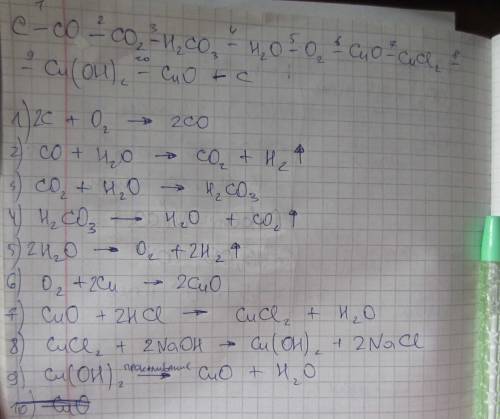 1
C – CO 2– CO₂ 3– H₂CO₃ 4– H₂O 5– O₂ 6– CuO 7– CuCl₂ 8–
9– Cu(OH)₂ 10– CuO + C
1) 2C + O₂ → 2CO
2) CO + H₂O → CO₂ + H₂↑
3) CO₂ + H₂O → H₂CO₃
4) H₂CO₃ → H₂O + CO₂↑
5) 2H₂O → O₂ + 2H₂↑
6) O₂ + 2Cu → 2CuO
7) CuO + 2HCl → CuCl₂ + H₂O
8) CuCl₂ + 2NaOH → Cu(OH)₂ + 2NaCl
9) Cu(OH)₂ прокаливание→ CuO + H₂O
10) CuO